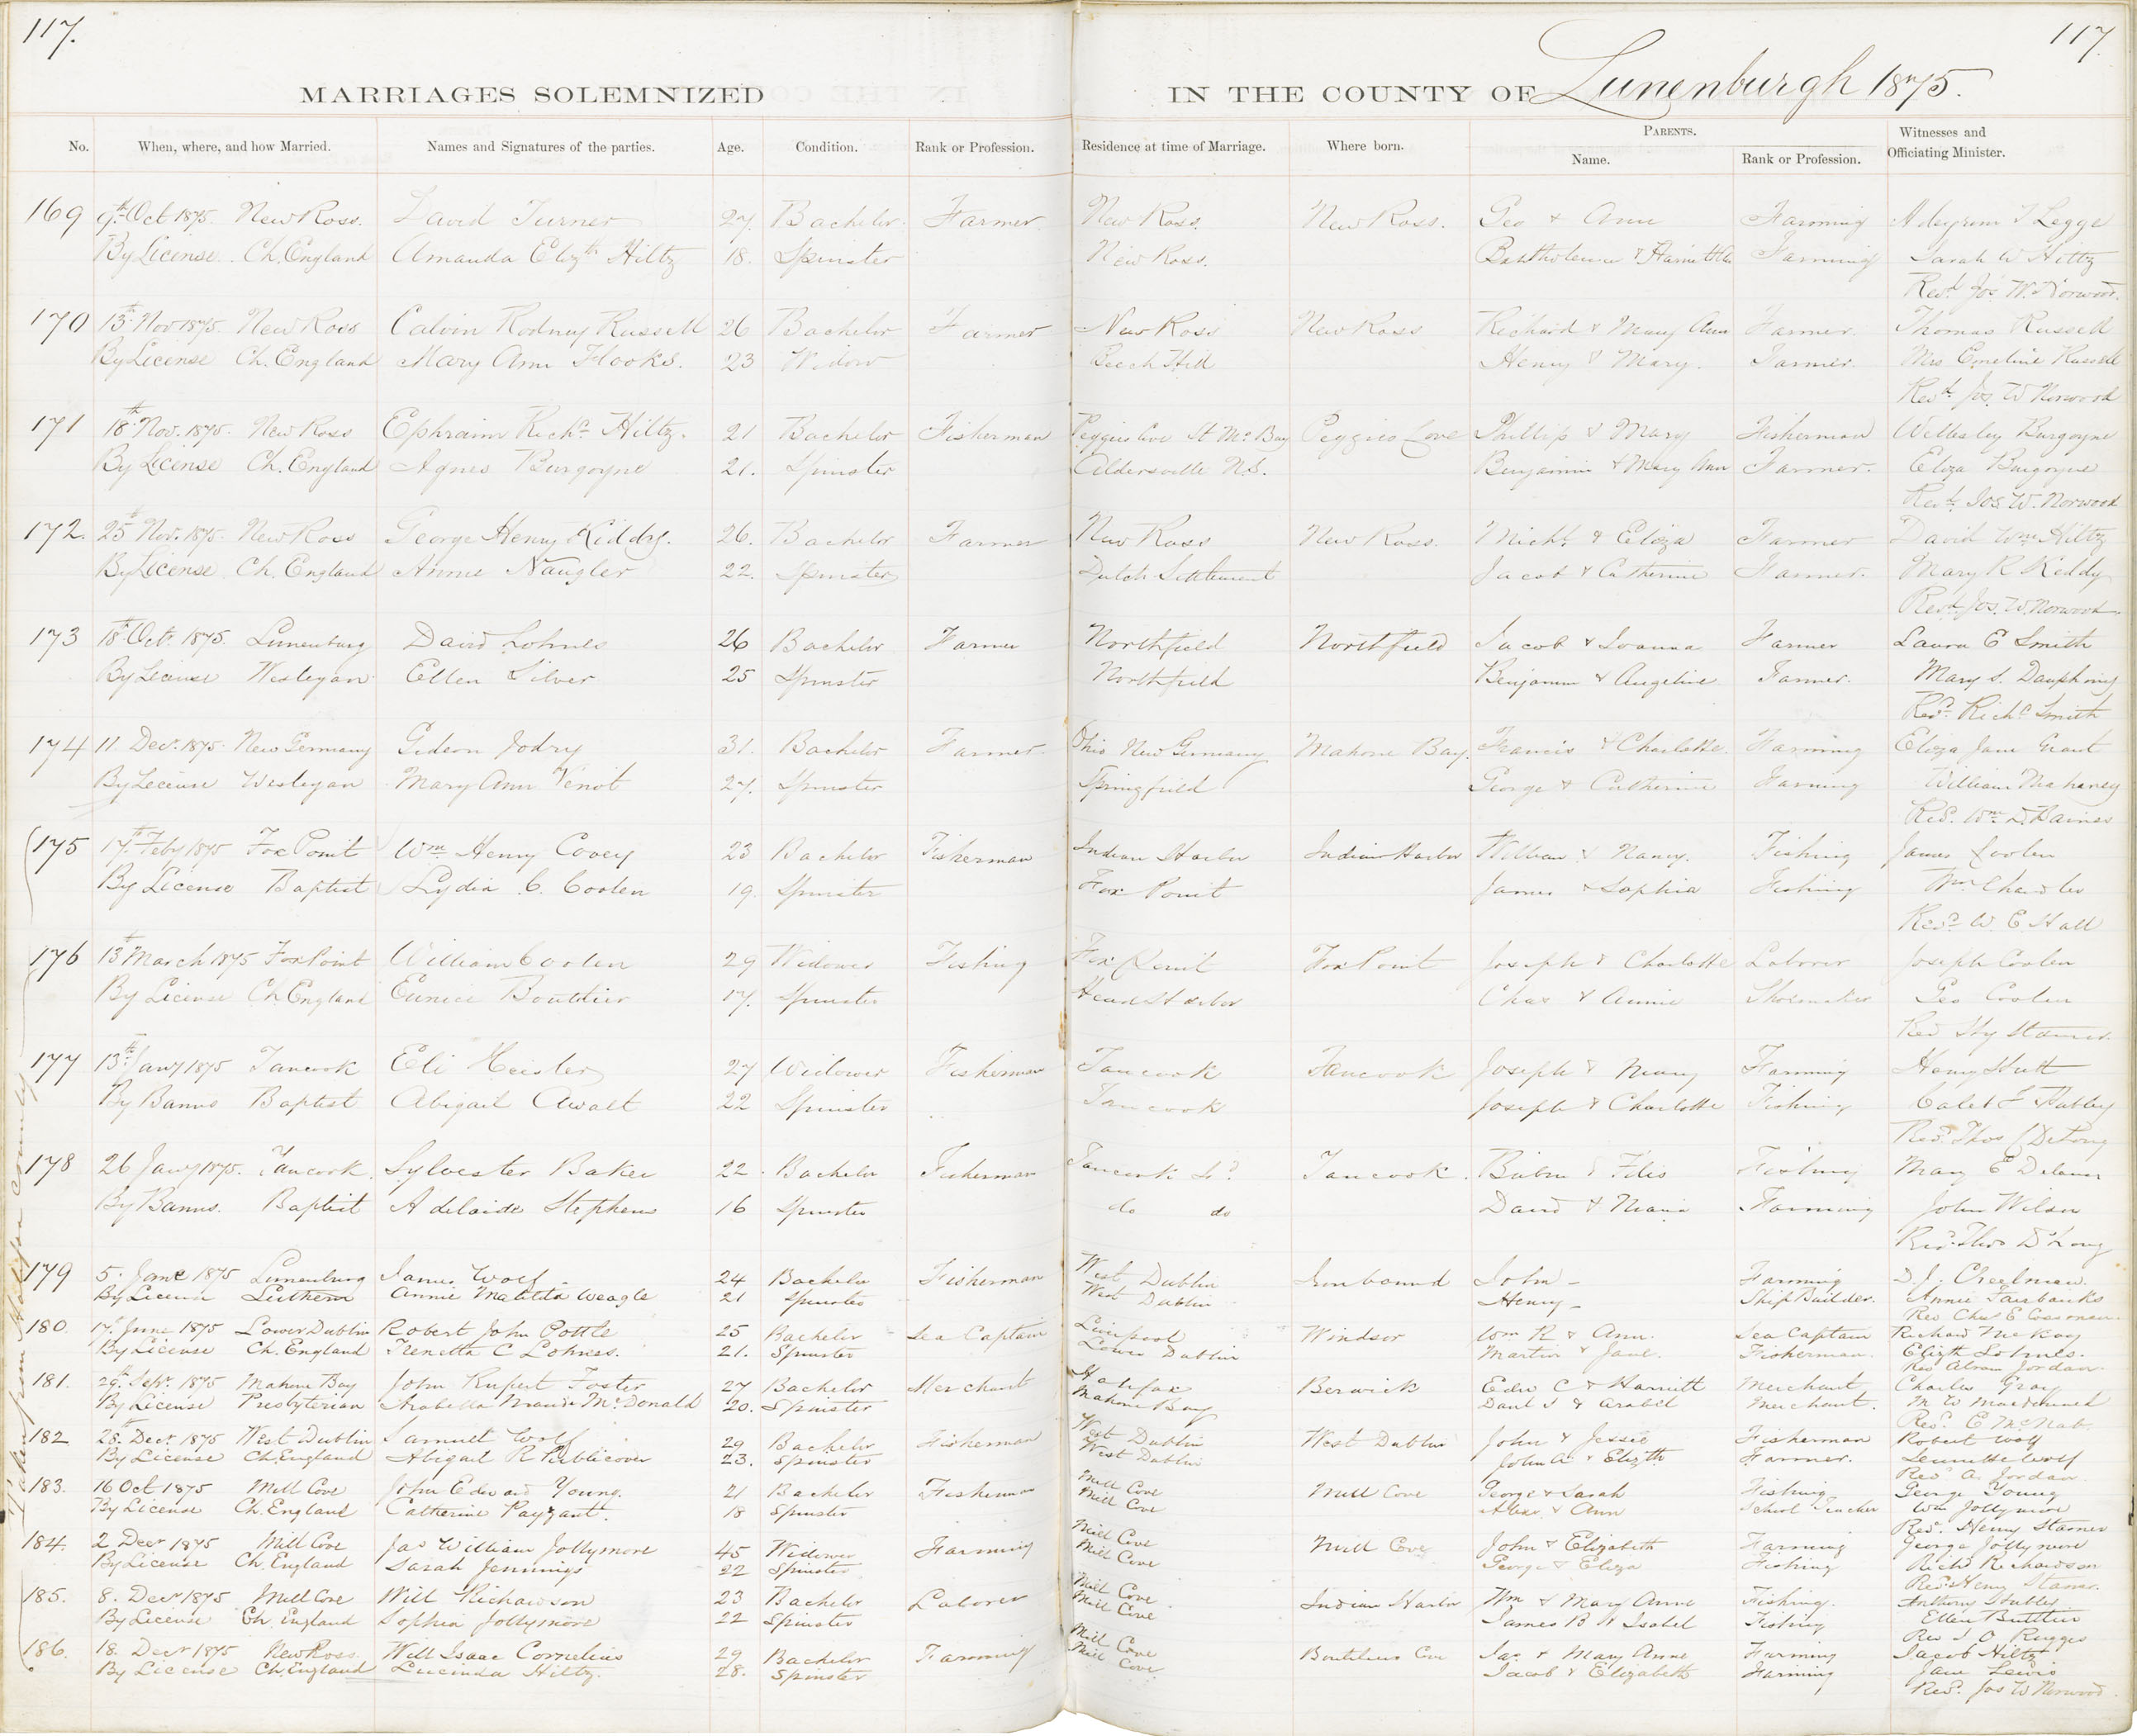 117.
117
MARRIAGES SOLEMNIZED IN THE COUNTY OF Lunenburgh 1875.
No. When, where, and how Married. Names and Signatures of the parties. Age. Condition. Rank or Profession. Residence at time of Marriage. Where born. PARENTS. Name. Rank or Profession. Witnesses and Officiating Minister.
169 9th Oct 1875. New Ross. David Turner 27. Bachelor. Farmer. New Ross. New Ross. Geo & Ann Farming T Legge
By License. Ch. England Amanda Elizth Hiltz 18. Spinster New Ross. Farming Sarah W Hiltz
Revd Jos W. Norwood.
170 13th Nov 1875. New Ross Calvin Rodney Russell 26 Bachelor Farmer New Ross New Ross Richard & Mary Ann Farmer. Thomas Russell
By License Ch. England Mary Ann Hooks. 23 Widow Beech Hill Henry & Mary. Farmer. Mrs Emeline Russell
Revd. Jos. W Norwood
171 18th Nov. 1875. New Ross Ephraim Richd Hiltz. 21 Bachelor Fisherman Peggies Cove St Ms Bay Peggies Cove Phillip & Mary Fisherman Wellesley Burgoyne
By License Ch. England Agnes Burgoyne 21. Spinster Aldersville N.S. Benjamin & Mary Ann Farmer. Eliza Burgoyne
Revd. Jos. W. Norwood
172. 25th Nov. 1875. New Ross George Henry Kiddy. 26. Bachelor Farmer New Ross New Ross. Michl. & Eliza Farmer David Wm Hiltz
By License Ch. England Annie Naugler 22. Spinster Dutch Settlement Jacob & Catherine Farmer. Mary R Keddy
Revd. Jos. W. Norwood
173 18th Octr. 1875. Lunenburg David Lohnes 26 Bachelor Farmer Northfield Northfield Jacob & Joanna Farmer Laura E Smith
By License Wesleyan Ellen Silver 25 Spinster Northfield Benjamin & Angeline Farmer. Mary S.
Revd. Richd Smith
174 11. Decr. 1875. New Germany Gideon Jodry 31. Bachelor Farmer Ohio New Germany Mahone Bay. Francis & Charlotte. Farming Eliza Jane Grant
By License Wesleyan Mary Ann Venot 27. Spinster Springfield George & Catherine Farming William Mahaney
Revd. Wm
175 17th Feby 1875 Fox Point Wm Henry Covey 23 Bachelor Fisherman Indian Harbor Indian Harbor William & Nancy. Fishing James Coolen
By License Baptist Lydia C. Coolen 19. Spinster Fox Point James & Sophia Fishing Wm
Revd. W E Hall
176 13th March 1875 Fox Point William Coolen 29 Widower Fishing Fox Point Fox Point Joseph & Charlotte Laborer Joseph Coolen
By License Ch England Eunice Boutilier 17. Spinster Head Harbor Chas & Annie Shoemaker Geo Coolen
Rev Hy Stamer
177 13th Jany 1875 Tancook Eli Heisler 27 Widower Fisherman Tancook Tancook Joseph & Mary Farming Henry
By Banns Baptist Abigail Awalt 22 Spinster Tancook Joseph & Charlotte Fishing Caleb
Revd. Thos DeLong
178 26 Jany 1875. Tancook. Sylvester Baker 22. Bachelor Fisherman Tancook Isd Tancook. Fishing Mary E
By Banns. Baptist Adelaide Stephens 16 Spinster do do David & Maria Farming John Wilson
Revd. Thos DeLong
179 5. June 1875 Lunenburg James Wolf 24 Bachelor Fisherman West Dublin Ironbound John - Farming D. J.
By License Lutheran Annie Matilda Weagle 21 Spinster West Dublin Henry - Ship Builder. Annie Fairbanks
Rev Chas E Cossman
180. 17. June 1875 Lower Dublin Robert John Pottle 25 Bachelor Sea Captain Liverpool Windsor Wm R & Ann. Sea Captain Richard McKay
By License Ch. England C Lohness. 21. Spinster Lower Dublin Martin & Jane. Fisherman. Elizth Lohnes.
Rev Abram Jordan
181. 29th Sept. 1875 Mahone Bay John Rupert Foster 27 Bachelor Merchant Halifax Berwick Edw C & Harriett Merchant Charles Gray
By License Presbyterian Arabella Maude McDonald 20. Spinster Mahone Bay Danl J & Arabel Merchant. M W
Revd. E McNab.
182 25th Decr. 1875 West Dublin Samuel Wolf 29 Bachelor Fisherman West Dublin West Dublin John & Jessie Fisherman Robert Wolf
By License Ch. England Abigail R Publicover 23. Spinster West Dublin John A. & Elizth Farmer. Wolf
Revd A. Jordan.
183. 16 Oct 1875 Mill Cove John Edward Young. 21 Bachelor Fisherman Mill Cove Mill Cove George & Sarah Fishing George Young
By License Ch. England Catherine Payzant. 18 Spinster Mill Cove Alex & Ann School Teacher Wm Jollymore
Revd. Henry Stamer
184. 2 Decr 1875 Mill Cove Jas William Jollymore 45 Widower Farming Mill Cove Mill Cove John & Elizabeth Farming George Jollymore
By License Ch. England Sarah Jennings 22 Spinster Mill Cove George & Eliza Fishing Richd Richardson
Revd Henry Stamer.
185. 8. Decr 1875 Mill Cove Will Richardson 23 Bachelor Laborer Mill Cove Indian Harbor Wm & Mary Anne Fishing. Anthony
By License Ch England Sophia Jollymore 22 Spinster Mill Cove James B & Isabel Fishing Ellen
Rev J O Ruggles
186. 18. Decr 1875 New Ross. Will Isaac Cornelius 29 Bachelor Farming Mill Cove Boutiliers Cove Jas. & Mary Anne Farming Jacob Hiltz
By License Ch. England Lucinda Hiltz. 28. Spinster Mill Cove Jacob & Elizabeth Farming Jane Lewis
Revd. Jos W Norwood.
Taken from Halifax County